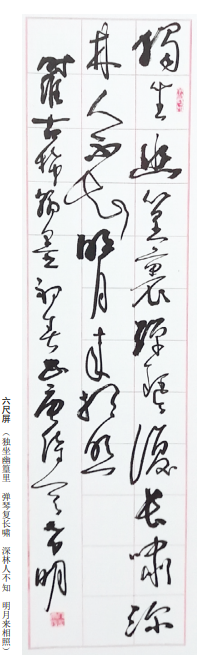 獨坐幽篁裏彈琴復長嘯深
林人不知明月來相照
翰墨初春書唐詩
六尺屏（独坐幽篁里 弹琴复长啸 深林人不知 明月来相照）